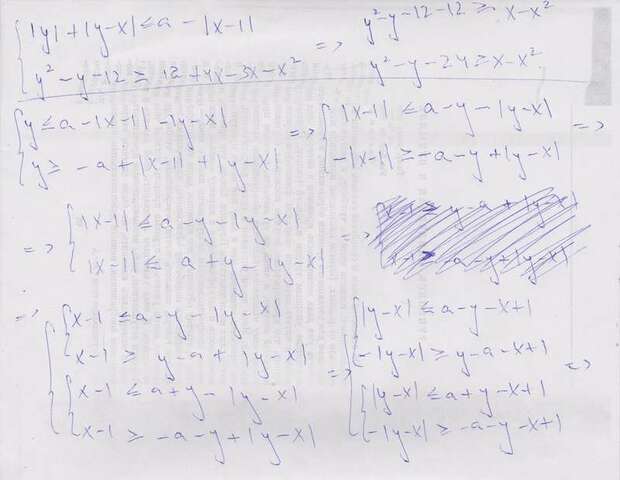 |y| + |y-x| ≤ a - |x-1|
y² - y - 12 ≥ 12 + 4x - 3x - x²
=>
y² - y - 12 - 12 ≥ x - x²
y² - y - 24 ≥ x - x²
y ≤ a - |x-1| - |y-x|
y ≥ -a + |x-1| + |y-x|
=>
|x-1| ≤ a - y - |y-x|
-|x-1| ≥ -a - y + |y-x|
=>
=>
|x-1| ≤ a - y - |y-x|
|x-1| ≤ a + y - |y-x|
=>
=>
x-1 ≤ a - y - |y-x|
x-1 ≥ y - a + |y-x|
x-1 ≤ a + y - |y-x|
x-1 ≥ -a - y + |y-x|
=>
|y-x| ≤ a - y - x + 1
-|y-x| ≥ y - a - x + 1
|y-x| ≤ a + y - x + 1
-|y-x| ≥ -a - y - x + 1
=>